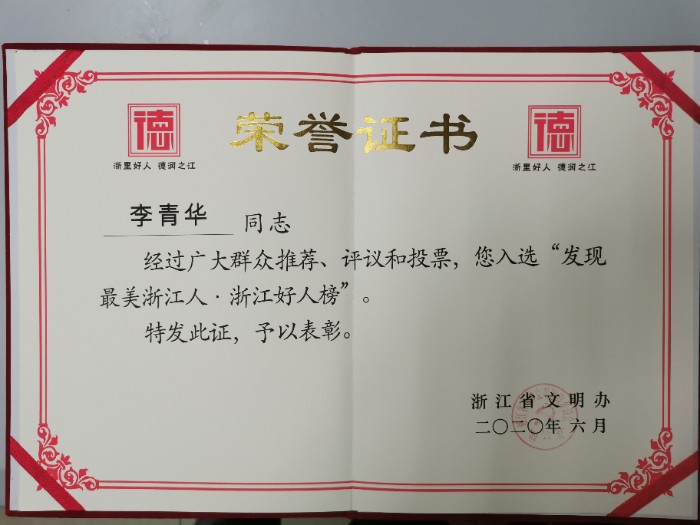 德
荣誉证书
德
浙里好人 德润之江
浙里好人 德润之江
李青华 同志
经过广大群众推荐、评议和投票，您入选“发现
最美浙江人·浙江好人榜”。
特发此证，予以表彰。
浙江省文明办
二〇二〇年六月